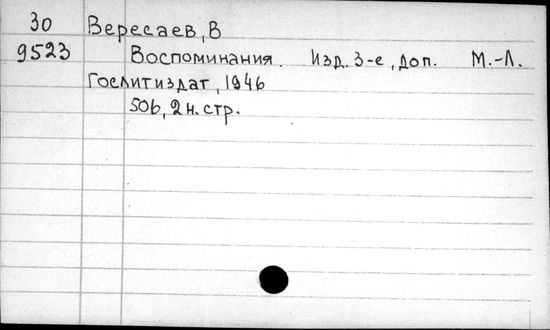 30 Вересаев, В
9523 Воспоминания. Изд. 3-е, доп. М.-Л.
Гослитиздат, 1946
506, 2 н. стр.